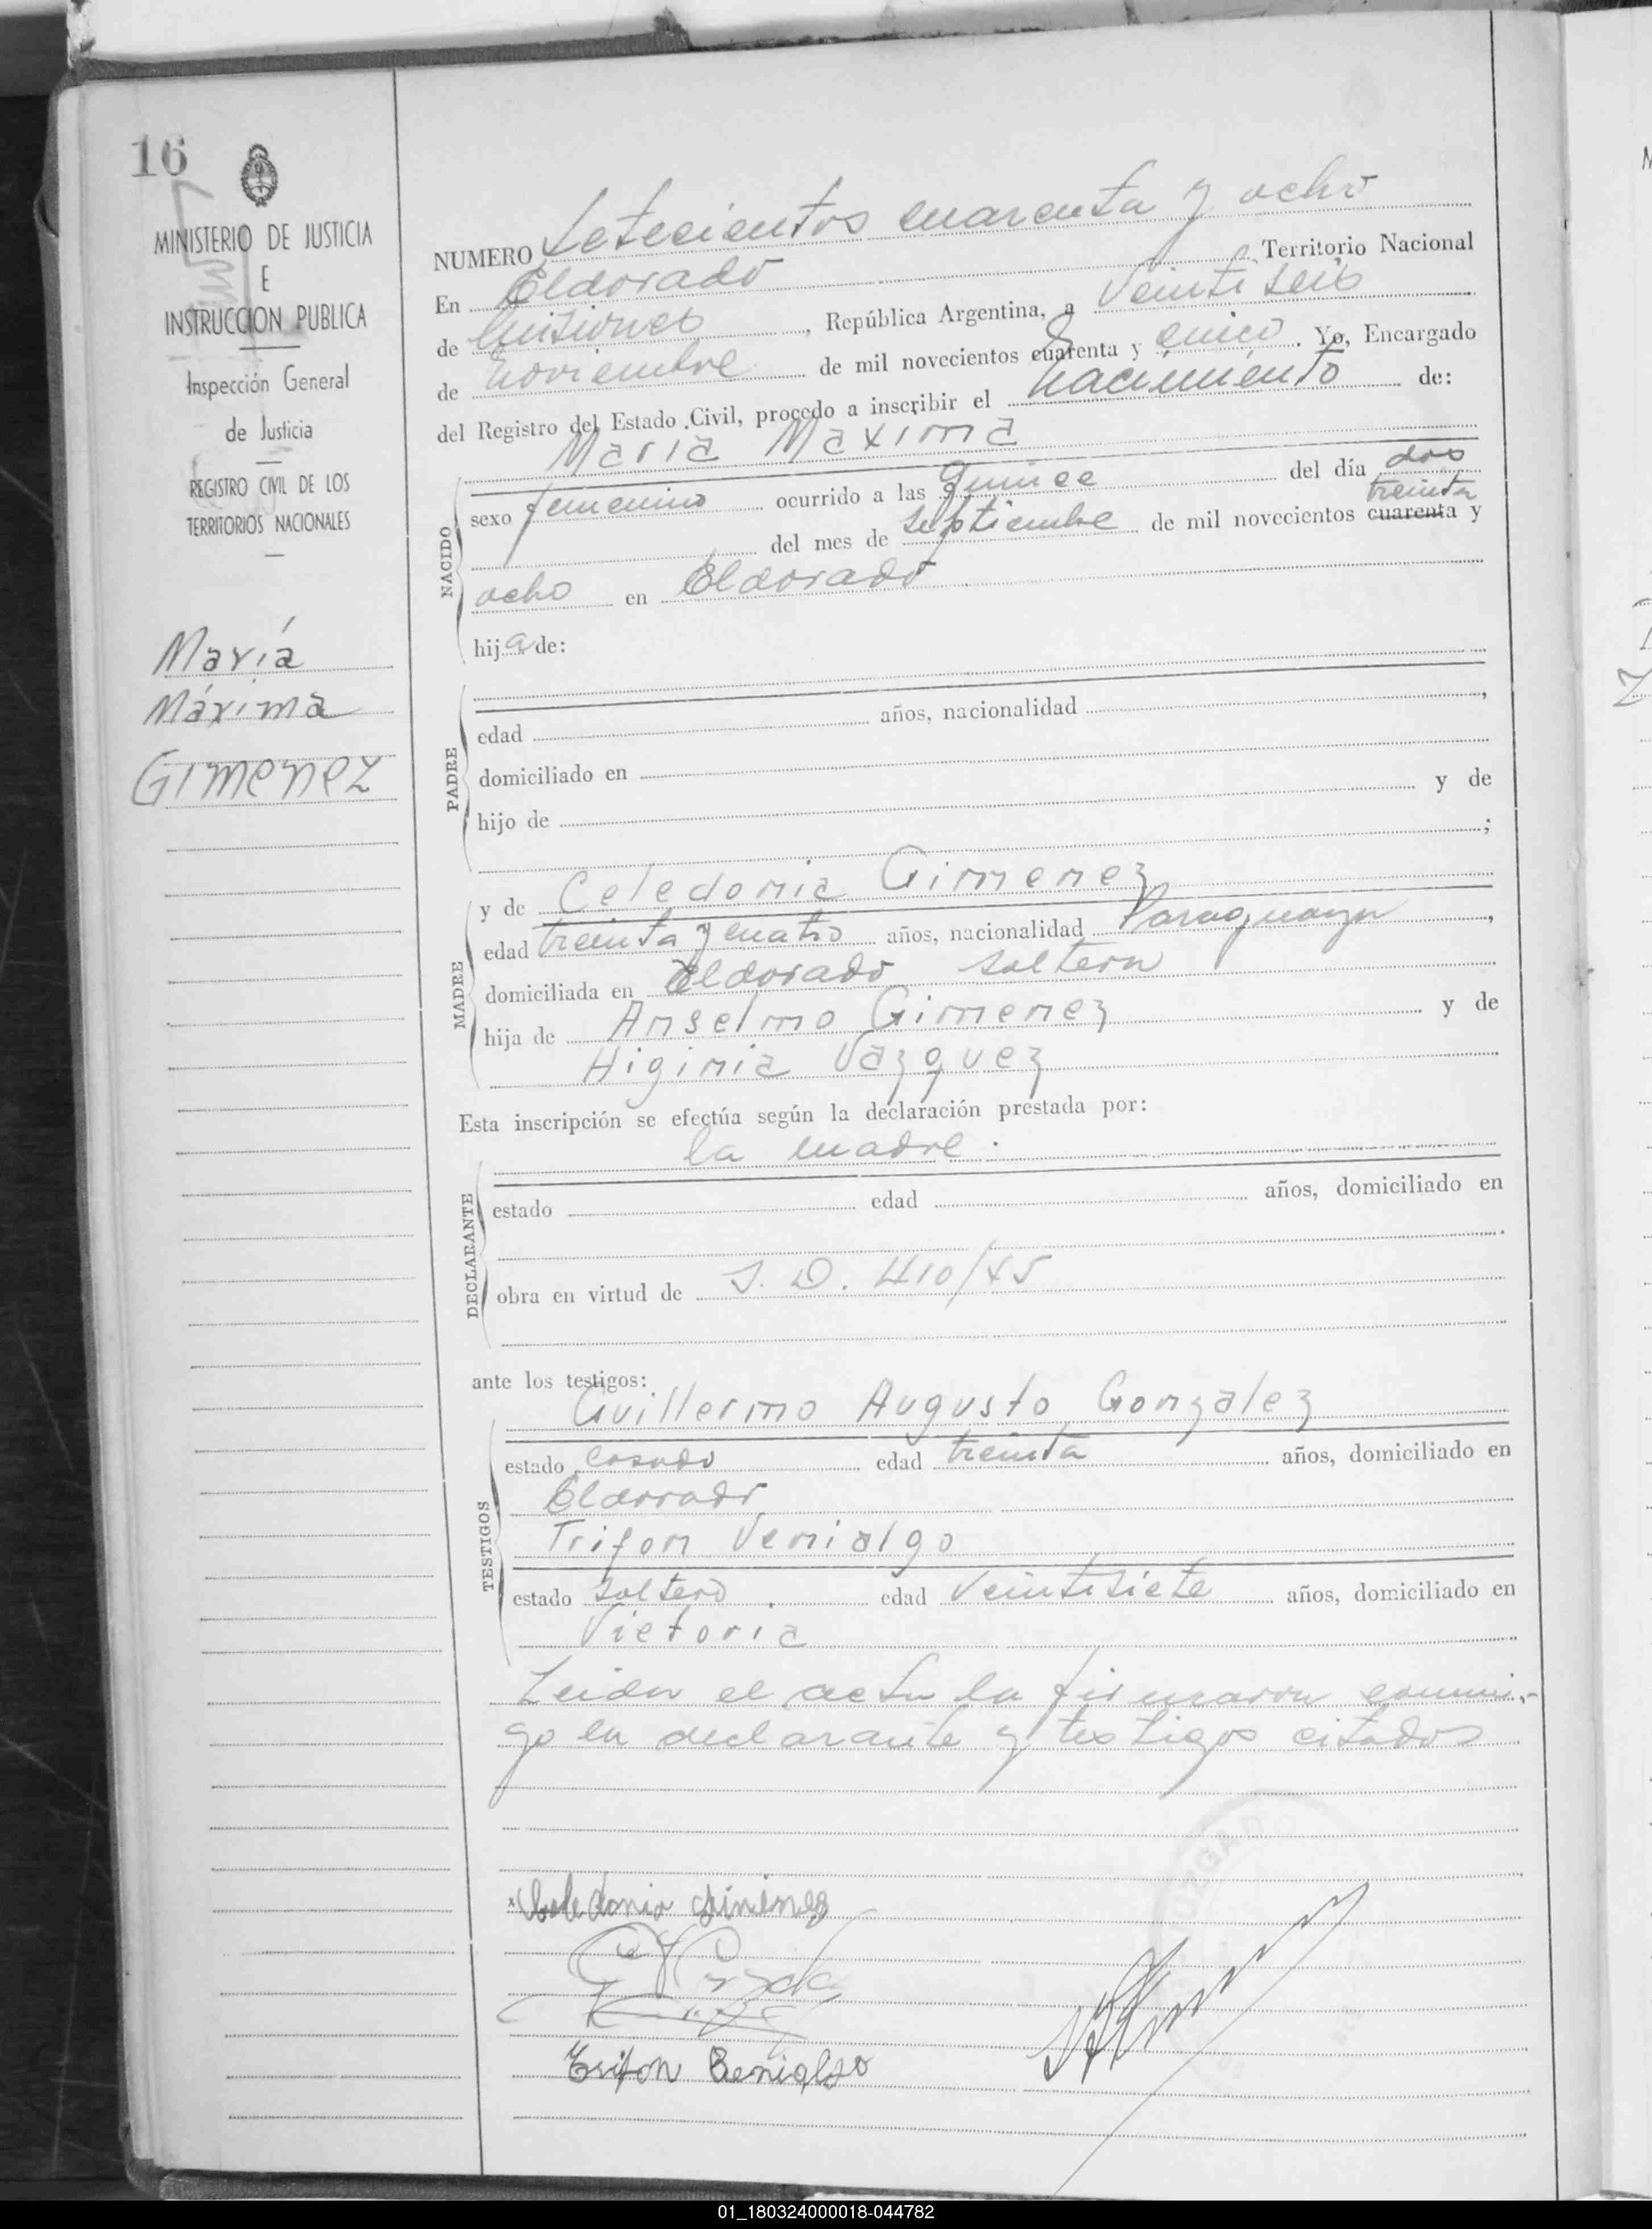 16
MINISTERIO DE JUSTICIA
E
INSTRUCCION PUBLICA
Inspección General
de Justicia
REGISTRO CIVIL DE LOS
TERRITORIOS NACIONALES
María
Máxima
Gimenez
NUMERO Setecientos cuarenta y ocho
En Eldorado Territorio Nacional
de Misiones, República Argentina, a Veintiseis
de Noviembre de mil novecientos cuarenta y cinco. Yo, Encargado
del Registro del Estado Civil, procedo a inscribir el nacimiento de:
Maria Maxima
NACIDO
sexo femenino ocurrido a las quince del día dos
treinta
del mes de septiembre de mil novecientos cuarenta y
ocho en Eldorado
hija de:
PADRE
edad años, nacionalidad ,
domiciliado en
hijo de y de
;
MADRE
y de Celedonia Gimenez
edad treinta y cuatro años, nacionalidad Paraguaya,
domiciliada en Eldorado soltera
hija de Anselmo Gimenez y de
Higinia Vazquez
Esta inscripción se efectúa según la declaración prestada por:
la madre.
DECLARANTE
estado edad años, domiciliado en
obra en virtud de S. D. 410/45
ante los testigos:
TESTIGOS
Guillermo Augusto Gonzalez
estado casado edad treinta años, domiciliado en
Eldorado
Trifon Venialgo
estado soltero edad Veintisiete años, domiciliado en
Victoria
Leida el acta la firmaron conmi-
go la declarante y testigos citados
Celedonia Jiménez
Trifon Benialgo
JUZGADO
01_180324000018-044782